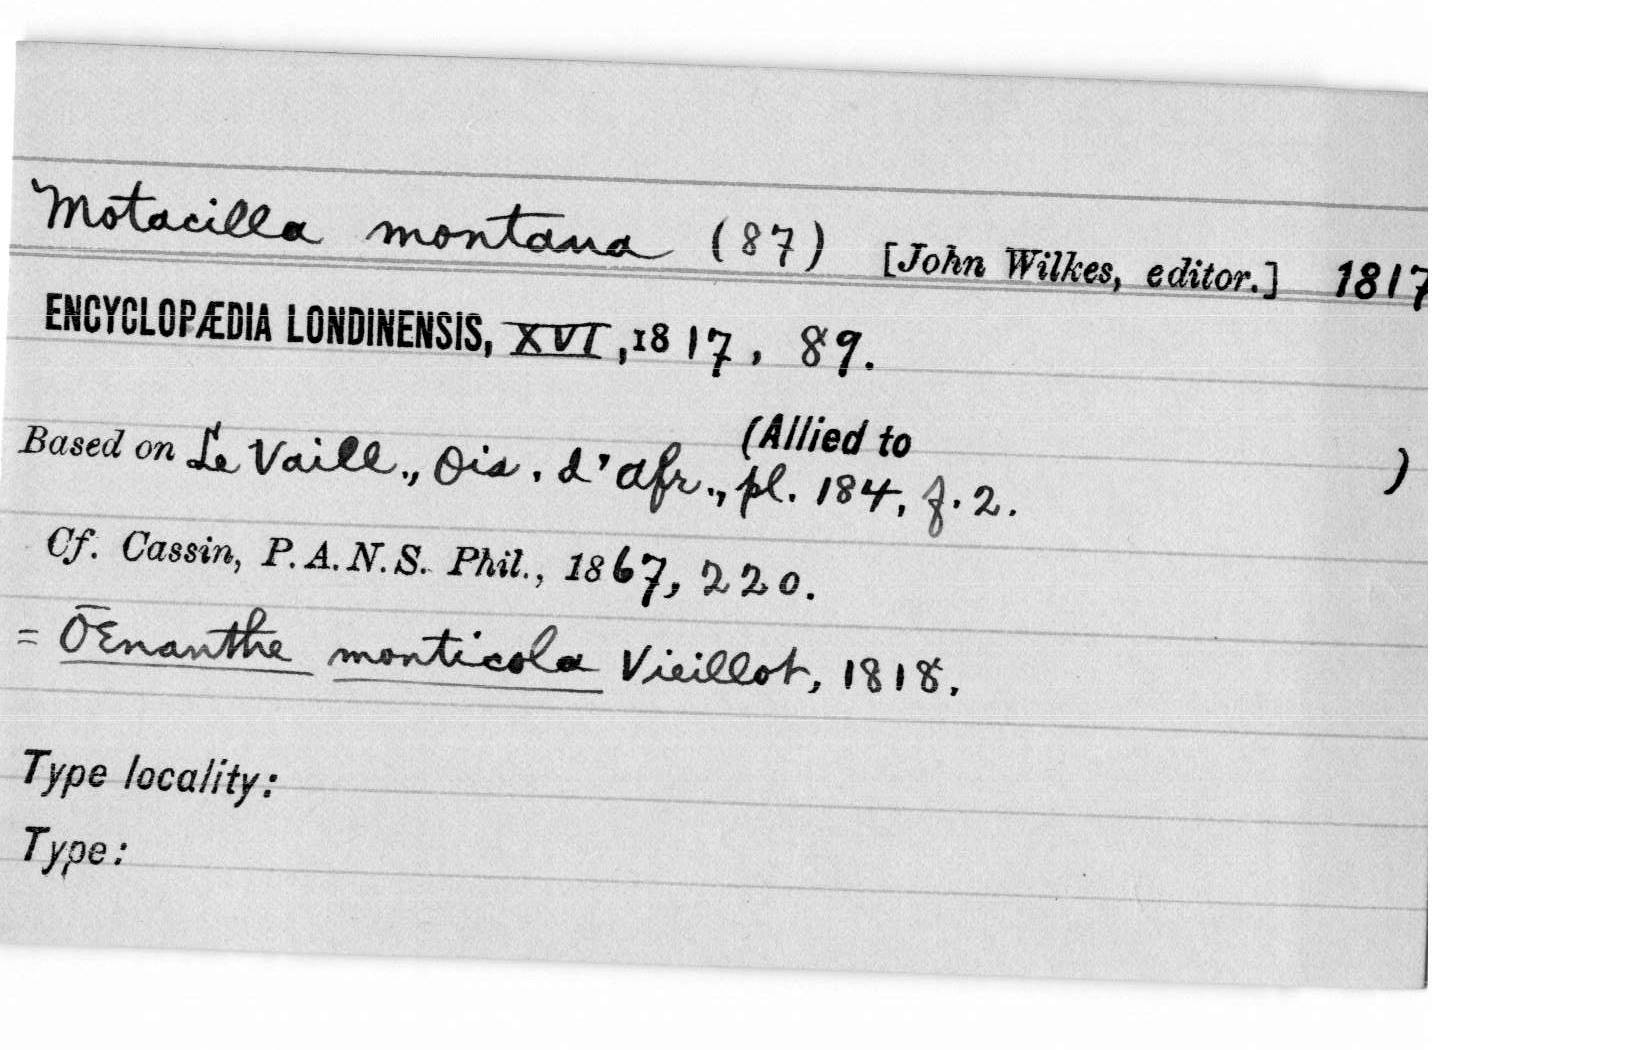 Motacilla montana (87) [John Wilkes, editor.] 1817
ENCYCLOPÆDIA LONDINENSIS, XVI, 1817, 89.
(Allied to )
Based on Le Vaill., Ois. d'Afr., pl. 184, f. 2.
Cf. Cassin, P. A. N. S. Phil., 1867, 220.
= OEnanthe monticola Vieillot, 1818.
Type locality:
Type: